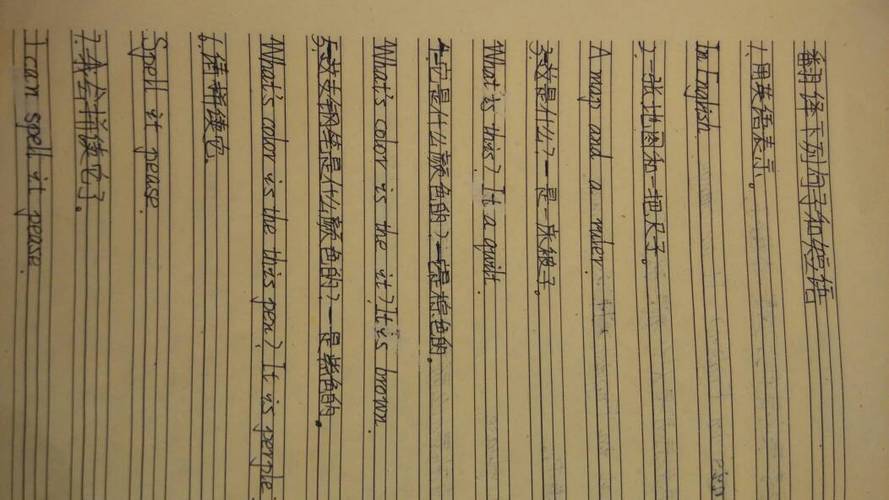 翻译下列句子和短语
1.用英语表示。
In English.
2.一张地图和一把尺子。
A map and a ruler.
3.这是什么?一是一床被子。
What's this? It a quilt.
4.它是什么颜色的?一它是棕色的。
What's color is the it? It is brown.
5.这支钢笔是什么颜色的?一是紫色的。
What's color is the this pen? It is perple.
6.请拼读它.
Spell it pease.
7.我会拼读它了。
I can spell it pease.